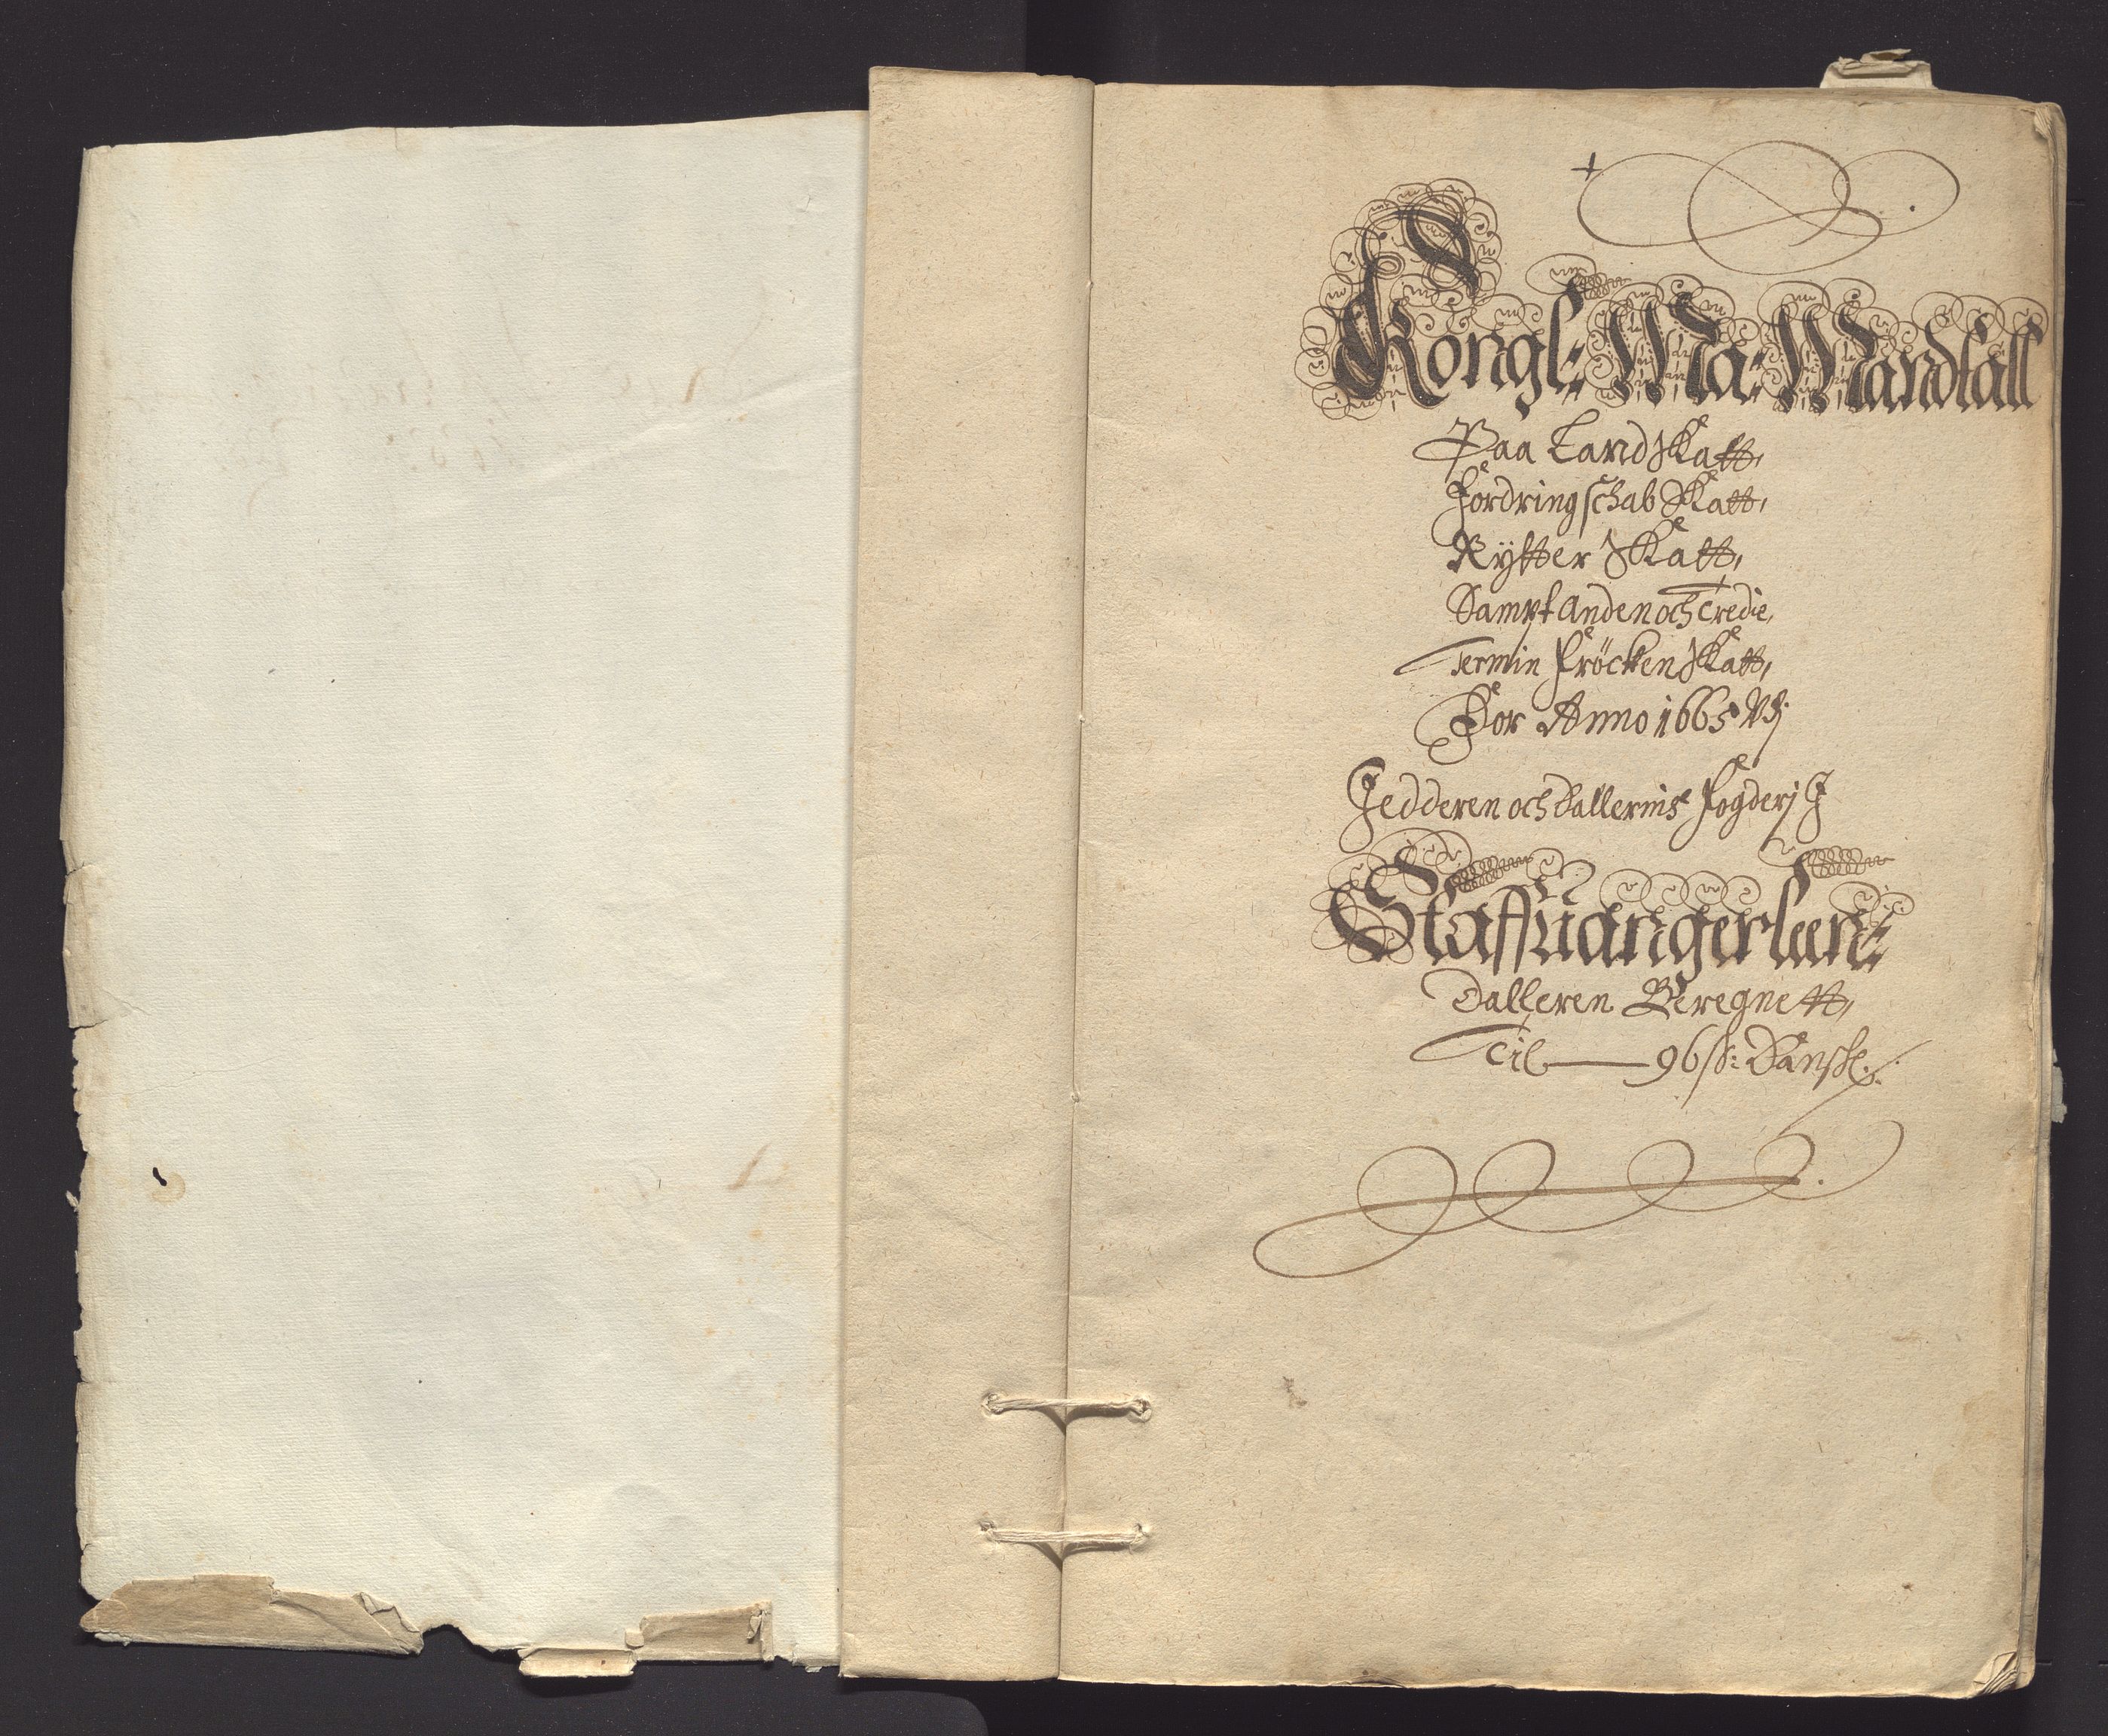 Kongl: Ma: Mandtall
Paa Land Skatt,
Fordringschab Skatt,
Rÿtter Skatt,
Sampt Anden och Tredie,
Termin Fröcken Skatt,
For Anno 1665
Jedderen och Dallernis Fogderj J
Staffuangerlæn:
Dalleren Beregnett,
Til 96 ß: Danske.